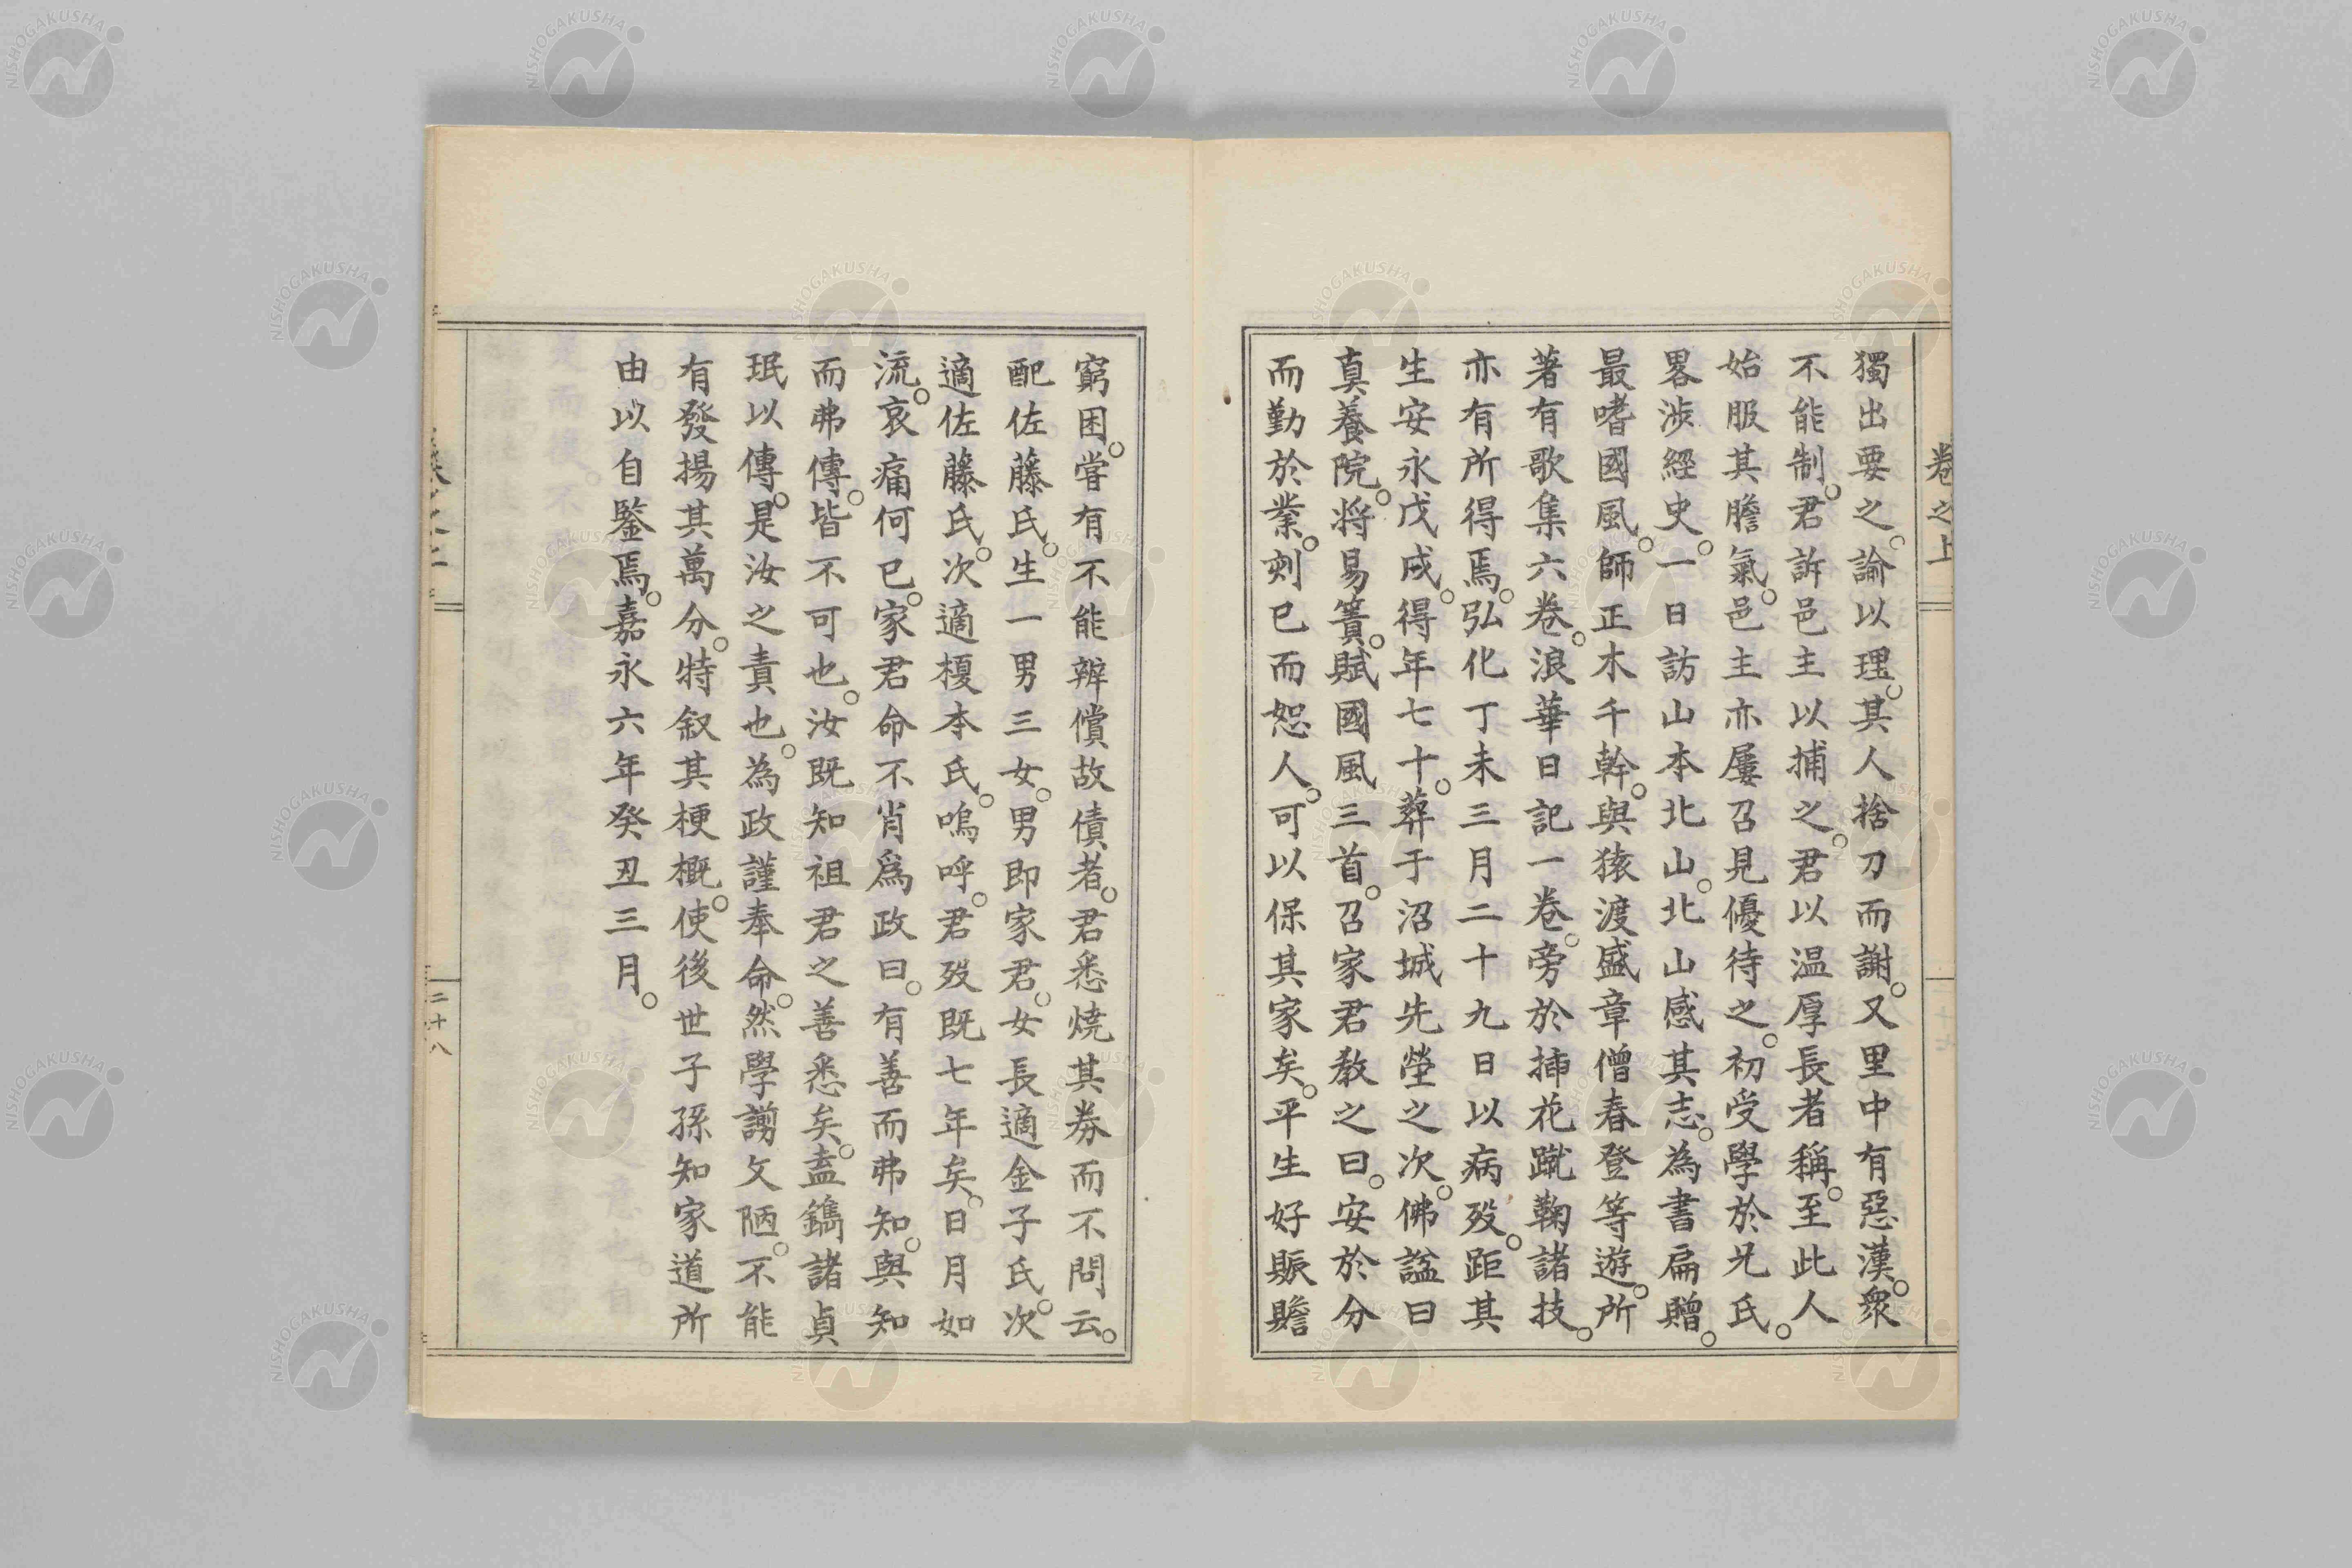 卷之上
獨出要之。諭以理。其人捨刀而謝。又里中有惡漢。衆
不能制。君訴邑主以捕之。君以温厚長者稱。至此人
始服其膽氣。邑主亦屢召見優待之。初受學於兄氏。
畧渉經史。一日訪山本北山。北山感其志。為書扁贈。
最嗜國風。師正木千幹。與猿渡盛章僧春登等遊。所
著有歌集六卷。浪華日記一卷。旁於挿花蹴鞠諸技。
亦有所得焉。弘化丁未三月二十九日以病歿。距其
生安永戊戌。得年七十。葬于沼城先塋之次。佛諡曰
真養院。将易簀。賦國風三首。召家君教之曰。安於分
而勤於業。刻已而恕人。可以保其家矣。平生好賑贍
窮困。嘗有不能辨償故債者。君悉焼其券而不問云。
配佐藤氏。生一男三女。男即家君。女長適金子氏。次
適佐藤氏。次適榎本氏。嗚呼。君歿既七年矣。日月如
流。哀痛何已。家君命不肖爲政曰。有善而弗知。與知
而弗傳。皆不可也。汝既知祖君之善悉矣。盍鐫諸貞
珉以傳。是汝之責也。為政謹奉命。然學譾文陋。不能
有發揚其萬分。特叙其梗概。使後世子孫知家道所
由以自鑒焉。嘉永六年癸丑三月。
二十八
NISHOGAKUSHA